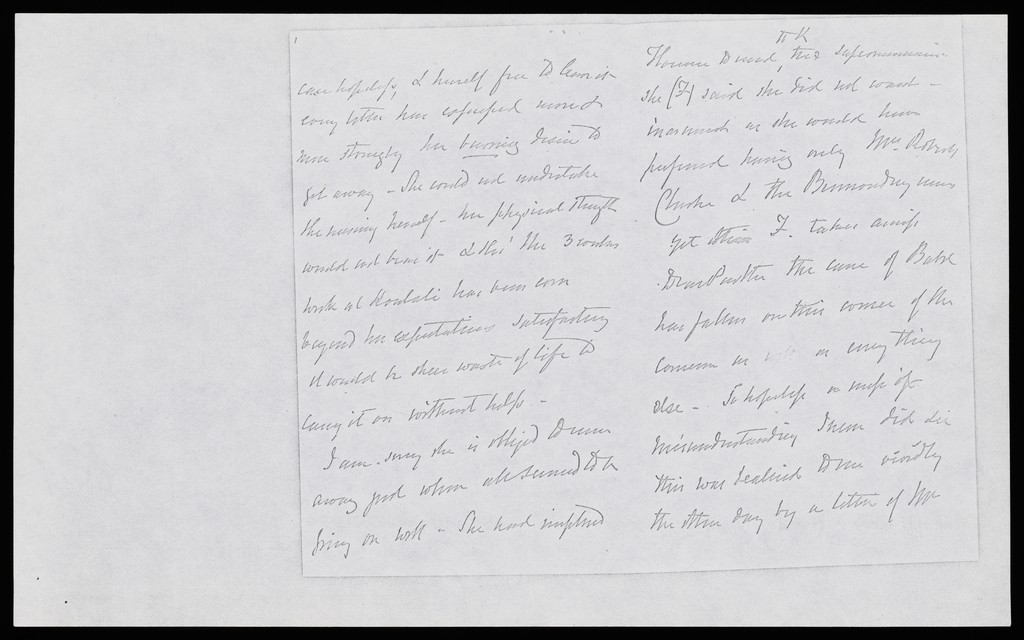 case hopeless, & herself free to leave it
every letter has expressed more &
more strongly her burning desire to
get away - She could not undertake
the nursing herself - her physical strength
would not bear it & tho' the 3 weeks
work at Koulali has been even
beyond her expectations satisfactory
it would be sheer waste of life to
carry it on without help -
I am sorry she is obliged to
away just when all seemed to be
going on well - She had
Florence to send, this
she (F) said she did not want -
inasmuch as she would have
preferred having only Mrs. Roberts
Clarke & the Bermondsey nuns
yet F. takes amiss
the curse of Babel
has fallen on this corner of the
concern as on everything
else - So hopeless a mass of
misunderstanding I never did see
this was realized to me vividly
the other day by a letter of Mr